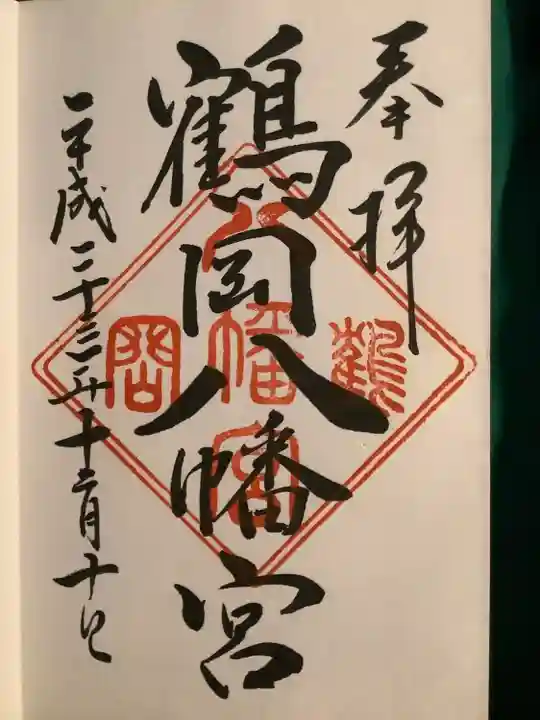 奉拝
鶴岡八幡宮
鶴 八幡宮 岡
平成二十三年十二月十日